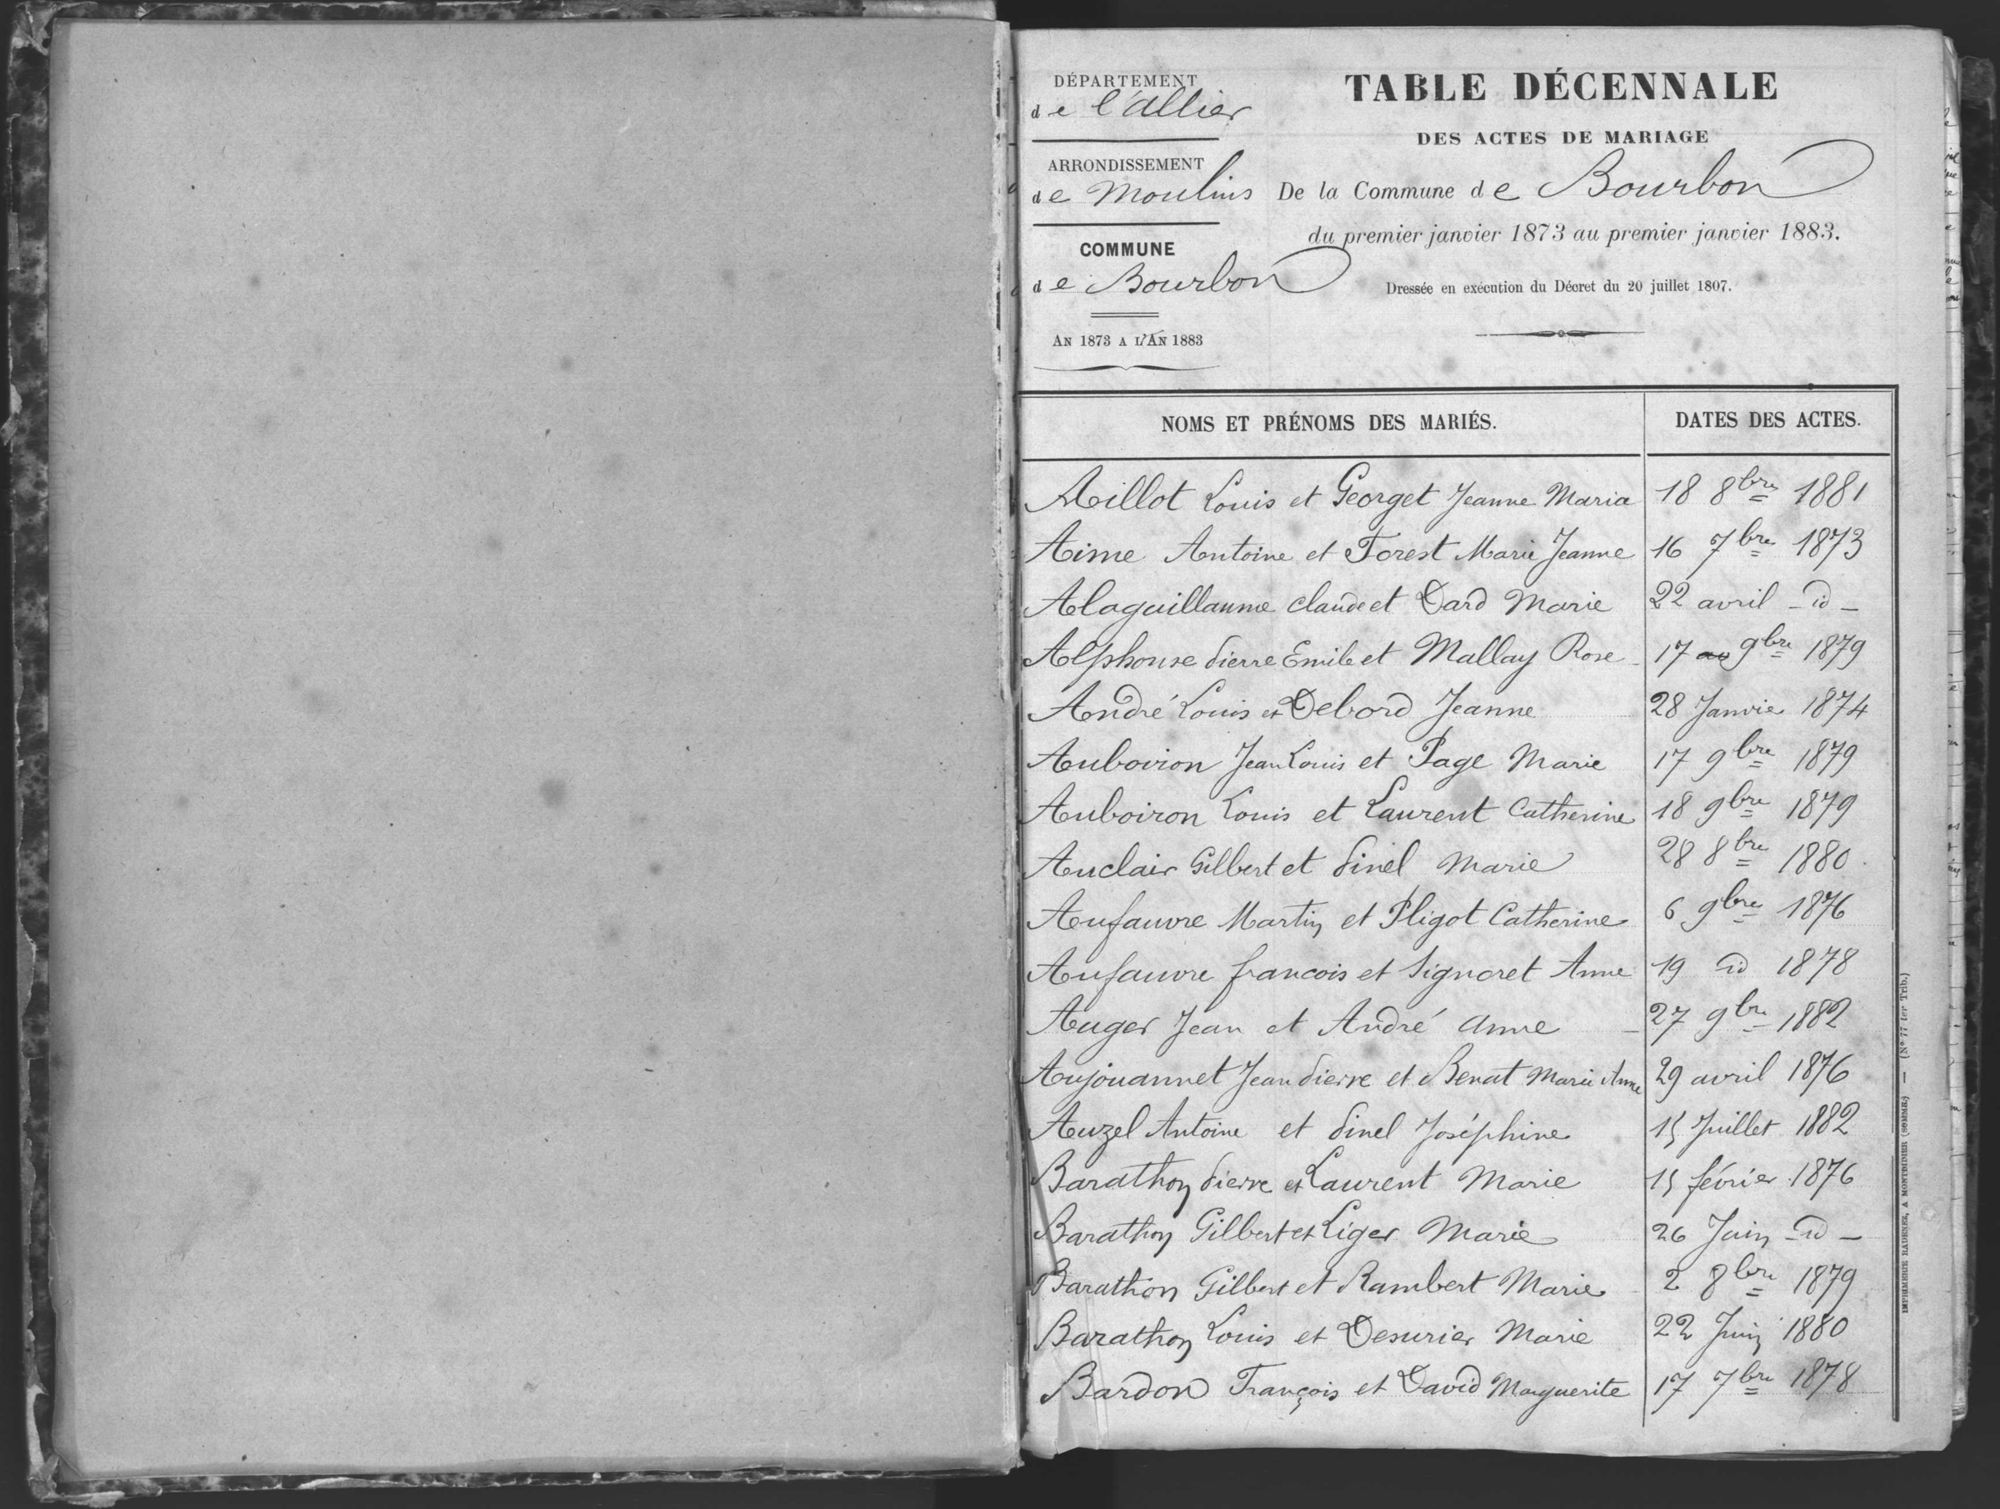 DÉPARTEMENT
de l'Allier
ARRONDISSEMENT
de Moulins
COMMUNE
de Bourbon
AN 1873 A L'AN 1883
TABLE DÉCENNALE
DES ACTES DE MARIAGE
De la Commune de Bourbon
du premier janvier 1873 au premier janvier 1883.
Dressée en exécution du Décret du 20 juillet 1807.
NOMS ET PRÉNOMS DES MARIÉS. DATES DES ACTES.
Aillot Louis et Georget Jeanne Maria 18 8bre 1881
Aime Antoine et Forest Marie Jeanne 16 7bre 1873
Alaguillaume Claude et Dard Marie 22 avril - id -
Alphonse Pierre Emile et Mallay Rose 17 9bre 1879
André Louis et Debord Jeanne 28 Janvier 1874
Auboiron Jean Louis et Page Marie 17 9bre 1879
Auboiron Louis et Laurent Catherine 18 9bre 1879
Auclair Gilbert et Pinel Marie 28 8bre 1880
Aufauvre Martin et Pligot Catherine 6 9bre 1876
Aufauvre francois et Signoret Anne 19 id 1878
Auger Jean et André Anne 27 9bre 1882
Aujouannet Jean Pierre et Benat Marie Anne 29 avril 1876
Auzel Antoine et Pinel Joséphine 15 Juillet 1882
Barathon Pierre et Laurent Marie 15 février 1876
Barathon Gilbert et Liger Marie 26 Juin - id -
Barathon Gilbert et Rambert Marie 2 8bre 1879
Barathon Louis et Desurier Marie 22 Juin 1880
Bardon François et David Marguerite 17 7bre 1878
IMPRIMERIE RADENEZ, A MONTDIDIER (SOMME) — (N° 77 ter Trib.)